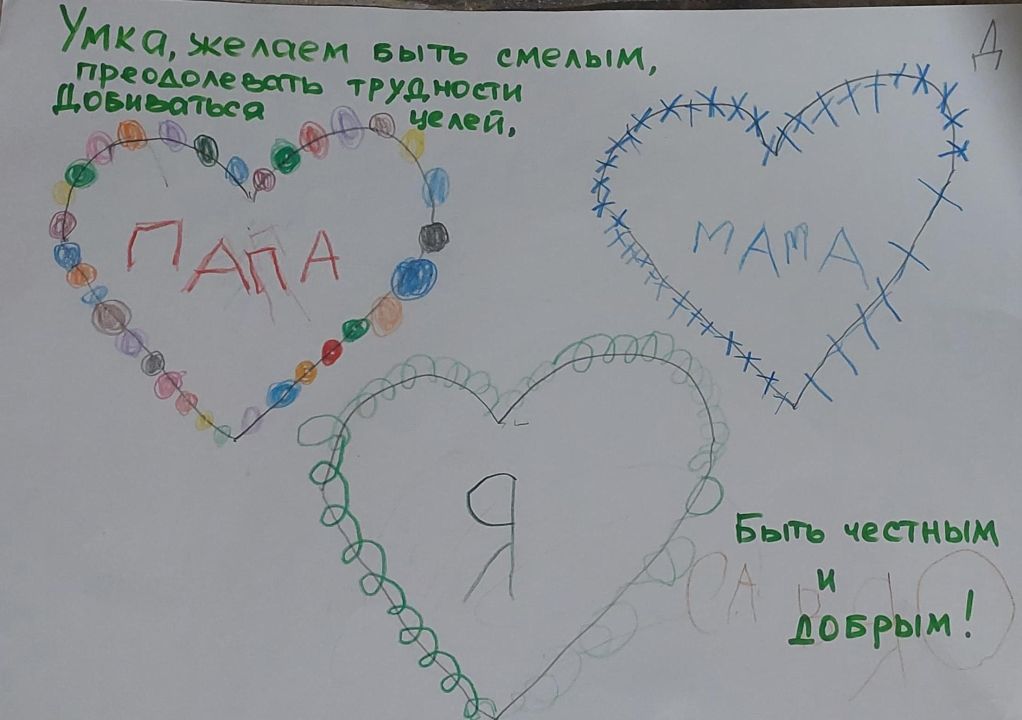 Умка, желаем быть смелым,
преодолевать трудности
Добиваться целей,
Д
ПАПА
МАМА
Я
Быть честным
и
добрым!